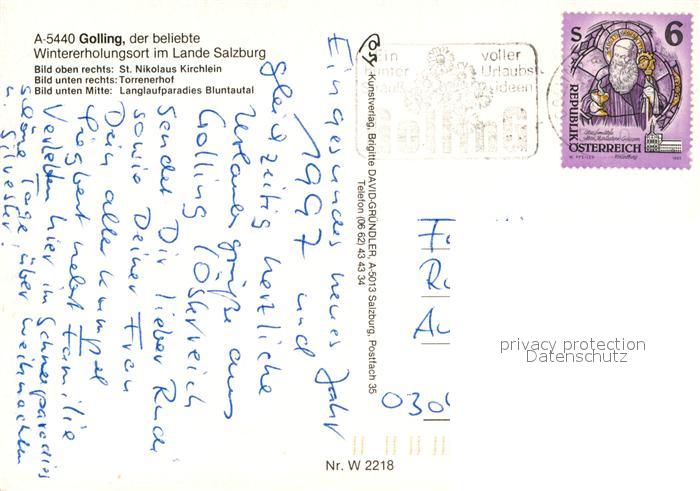 A-5440 Golling, der beliebte
Wintererholungsort im Lande Salzburg
Bild oben rechts: St. Nikolaus Kirchlein
Bild unten rechts: Torrenerhof
Bild unten Mitte: Langlaufparadies Bluntautal
Ein gesundes neues Jahr
1997 und
gleichzeitig herzliche
Urlaubsgrüße aus
Golling (Österreich
sendet Dir lieber Rudi
sowie Deiner Frau
Dein alter Kumpel
nebst Familie
Verlebten hier im Schneeparadies
schöne Tage über Weihnachten
u. Silvester.
Kunstverlag, Brigitte DAVID-GRÜNDLER, A-5013 Salzburg, Postfach 35
Telefon (06 62) 43 43 34
voller
Urlaubs-
ideen
S 6
REPUBLIK
ÖSTERREICH
privacy protection
Datenschutz
Nr. W 2218